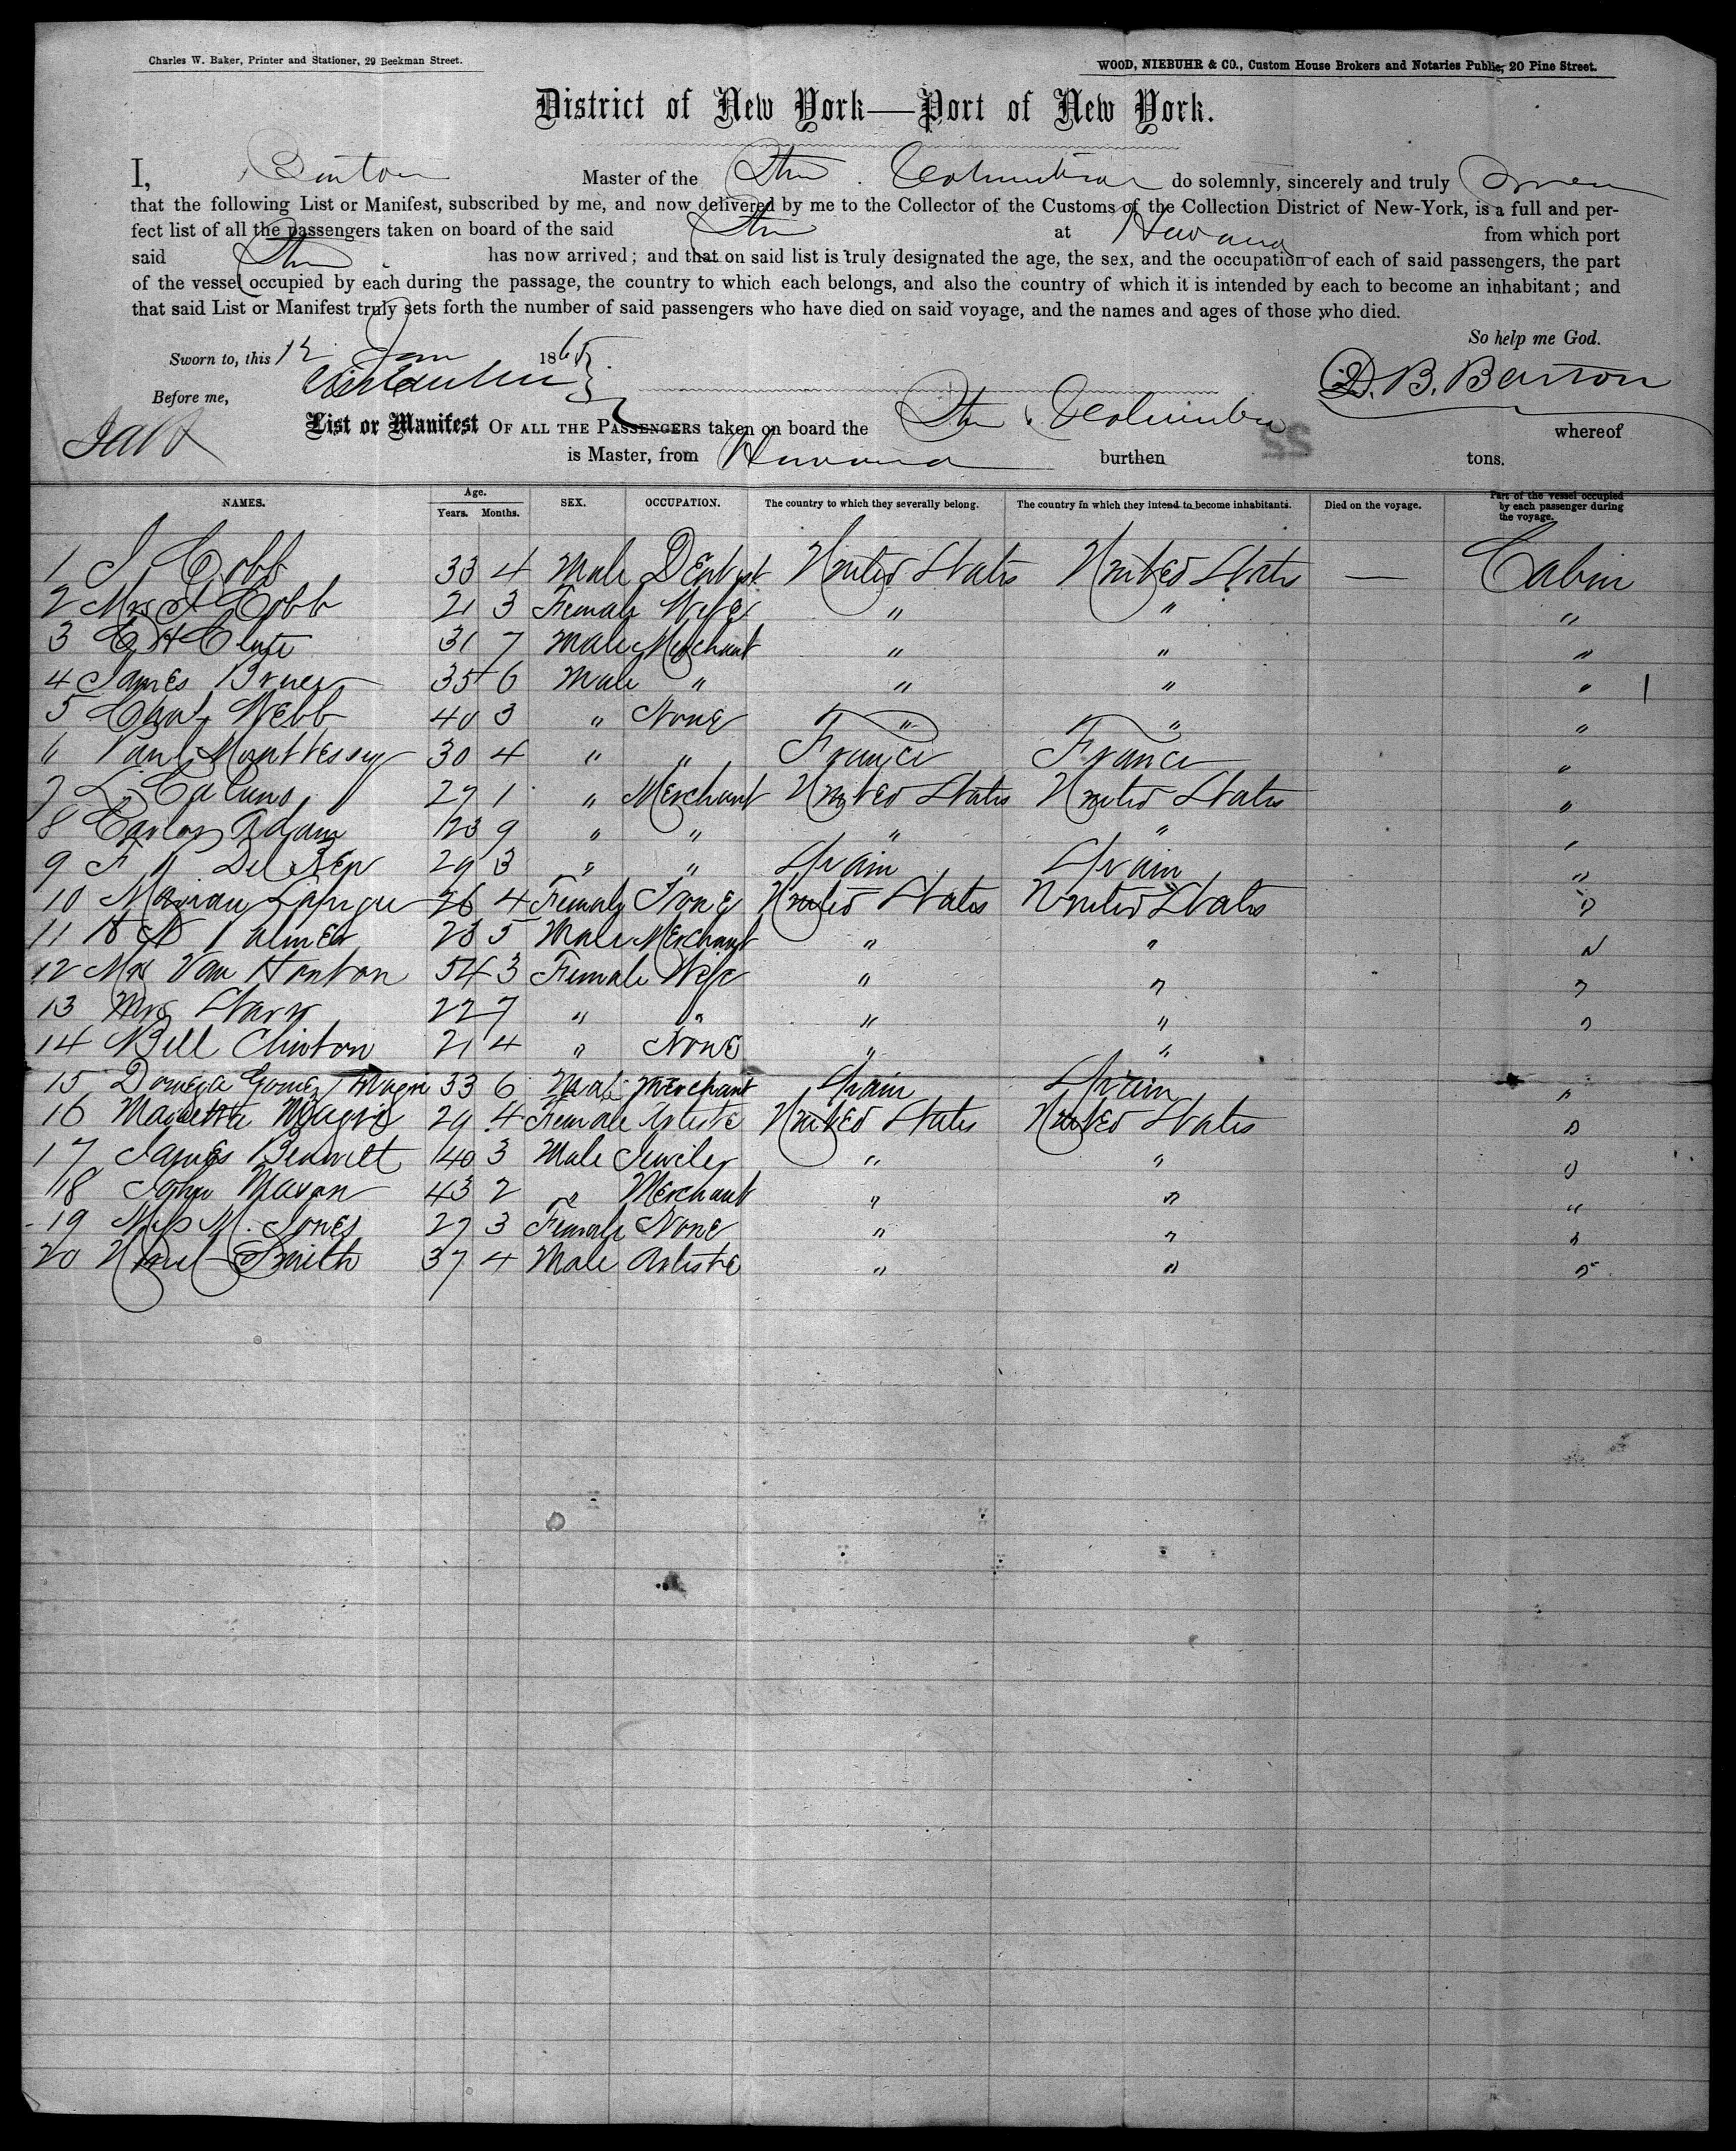 Charles W. Baker, Printer and Stationer, 29 Beekman Street.
WOOD, NIEBUHR & CO., Custom House Brokers and Notaries Public, 20 Pine Street.
District of New York—Port of New York.
I, Master of the Str. Columbia do solemnly, sincerely and truly
that the following List or Manifest, subscribed by me, and now delivered by me to the Collector of the Customs of the Collection District of New-York, is a full and per-
fect list of all the passengers taken on board of the said Str at Havana from which port
said Str has now arrived; and that on said list is truly designated the age, the sex, and the occupation of each of said passengers, the part
of the vessel occupied by each during the passage, the country to which each belongs, and also the country of which it is intended by each to become an inhabitant; and
that said List or Manifest truly sets forth the number of said passengers who have died on said voyage, and the names and ages of those who died.
So help me God.
Sworn to, this 12 Jan 1865
D. B. Barton
Before me,
List or Manifest OF ALL THE PASSENGERS taken on board the Str. Columbia whereof
is Master, from Havana burthen tons.
NAMES. Age. Years. Months. SEX. OCCUPATION. The country to which they severally belong. The country in which they intend to become inhabitants. Died on the voyage. Part of the vessel occupied by each passenger during the voyage.
1 J Cobb 33 4 Male Dentist United States United States — Cabin
2 Mrs J Cobb 21 3 Female Wife " " "
3 C H Clute 31 7 Male Merchant " " "
4 James Bruer 35 6 Male " " " "
5 Chas Webb 40 3 " None " " "
6 Paul 30 4 " " France France "
7 L. 27 1 " Merchant United States United States "
8 Carlos Adam 23 9 " " " " "
9 F Del Rey 29 3 " " Spain Spain "
10 26 4 Female None United States United States "
11 Palmer 23 5 Male Merchant " " "
12 Mrs Van Honton 54 3 Female Wife " " "
13 Mrs Starr 22 7 " " " " "
14 Bell Clinton 21 4 " None " "
15 Gomez 33 6 Male Merchant Spain Spain "
16 29 4 Female Artiste United States United States "
17 James Bennett 40 3 Male Jeweler " " "
18 John Mason 43 2 " Merchant " " "
19 Miss M. Jones 27 3 Female None " " "
20 Smith 37 4 Male Artiste " " "